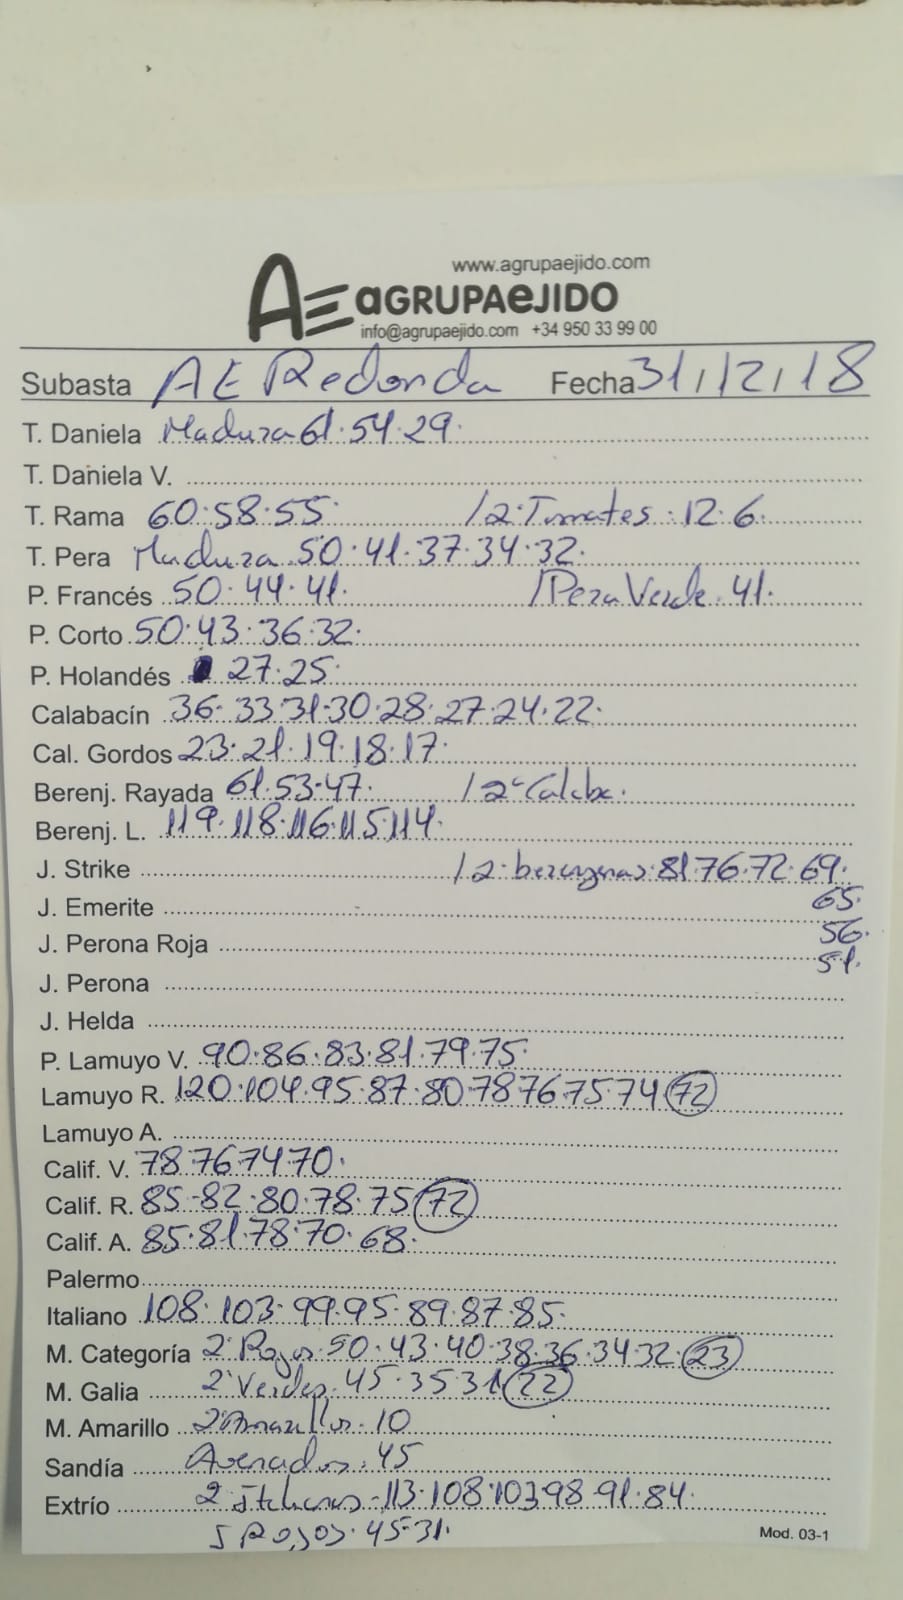 www.agrupaejido.com
AE aGRUPAeJIDO
info@agrupaejido.com +34 950 33 99 00
Subasta AE Redonda Fecha 31/12/18
T. Daniela Madura 61.54.29.
T. Daniela V.
T. Rama 60.58.55. /2ª Tomates.12.6.
T. Pera Madura 50.41.37.34.32.
P. Francés 50.44.41. /Pera Verde.41.
P. Corto 50.43.36.32.
P. Holandés 27.25.
Calabacín 36.33.31.30.28.27.24.22.
Cal. Gordos 23.21.19.18.17.
Berenj. Rayada 61.53.47. /2ª Calaba.
Berenj. L. 119.118.116.115.114.
J. Strike /2ª berenjenas.81.76.72.69.
J. Emerite 65.
J. Perona Roja 56.
J. Perona 51.
J. Helda
P. Lamuyo V. 90.86.83.81.79.75.
Lamuyo R. 120.104.95.87.80.78.76.75.74.72
Lamuyo A.
Calif. V. 78.76.74.70.
Calif. R. 85-82.80.78.75.72
Calif. A. 85.81.78.70.68.
Palermo
Italiano 108.103.99.95.89.87.85.
M. Categoría 2ª Rojos.50.43.40.38.36.34.32.23
M. Galia 2ª Verdes.45.35.31.22
M. Amarillo 2ª Amarillos.10
Sandía Asenados.45
Extrío 2ª Italianos-113.108.103.98.91.84.
5 Rojos.45-31.
Mod. 03-1